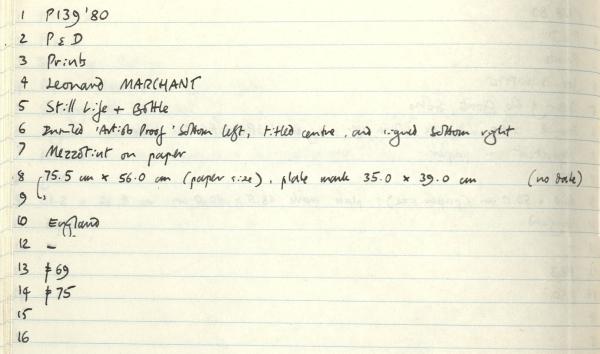 1 P139 '80
2 P & D
3 Prints
4 Leonard MARCHANT
5 Still Life + Bottle
6 Invited 'Artists Proof' bottom left, titled centre, and signed bottom right
7 Mezzotint on paper
8 75.5 cm x 56.0 cm (paper size), plate mark 35.0 x 39.0 cm (no date)
9
10 England
12 -
13 69
14 75
15
16